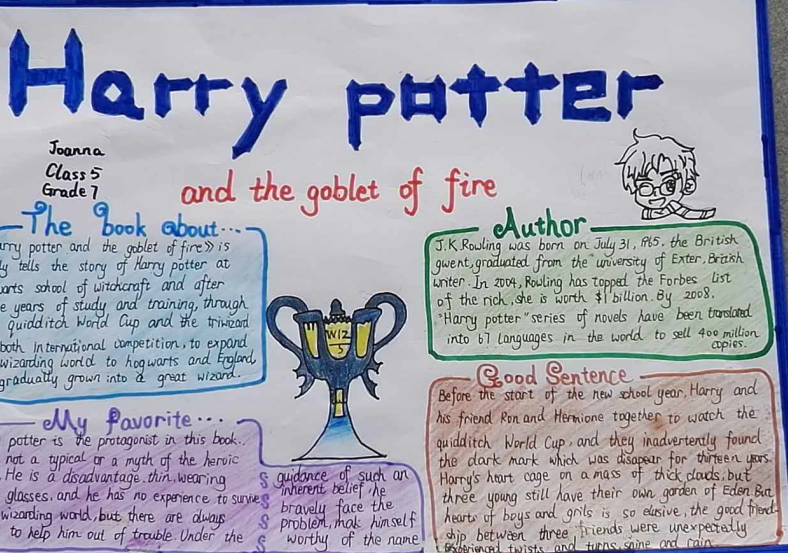 Harry potter
and the goblet of fire
Joanna
Class 5
Grade 7
The book about...
rry potter and the goblet of fire》 is
y tells the story of Harry potter at
arts school of witchcraft and after
e years of study and training, through
quidditch World Cup and the triwizard
both International competition, to expand
wizarding world to hogwarts and England,
gradually grown into a great wizard.
Author
J.K.Rowling was born on July 31, 1965, the British
gwent, graduated from the university of Exter, British
writer. In 2004, Rowling has topped the Forbes list
of the rich, she is worth $1 billion. By 2008,
"Harry potter" series of novels have been translated
into 67 languages in the world to sell 400 million
copies.
WIZ
S
My Favorite...
potter is the protagonist in this book.
not a typical or a myth of the heroic
He is a disadvantage, thin, wearing
glasses, and he has no experience to survive
wizarding world, but there are always
to help him out of trouble. Under the
guidance of such an
inherent belief, he
bravely face the
problem, mak himself
worthy of the name
Good Sentence
Before the start of the new school year, Harry and
his friend Ron and Hermione together to watch the
quidditch World Cup, and they inadvertently found
the dark mark which was disapear for thirteen years.
Harry's heart cage on a mass of thick clouds, but
three young still have their own garden of Eden. But
hearts of boys and grils is so elusive, the good friend-
ship between three friends were unexpectedly
experienced twists and turns, shine and rain